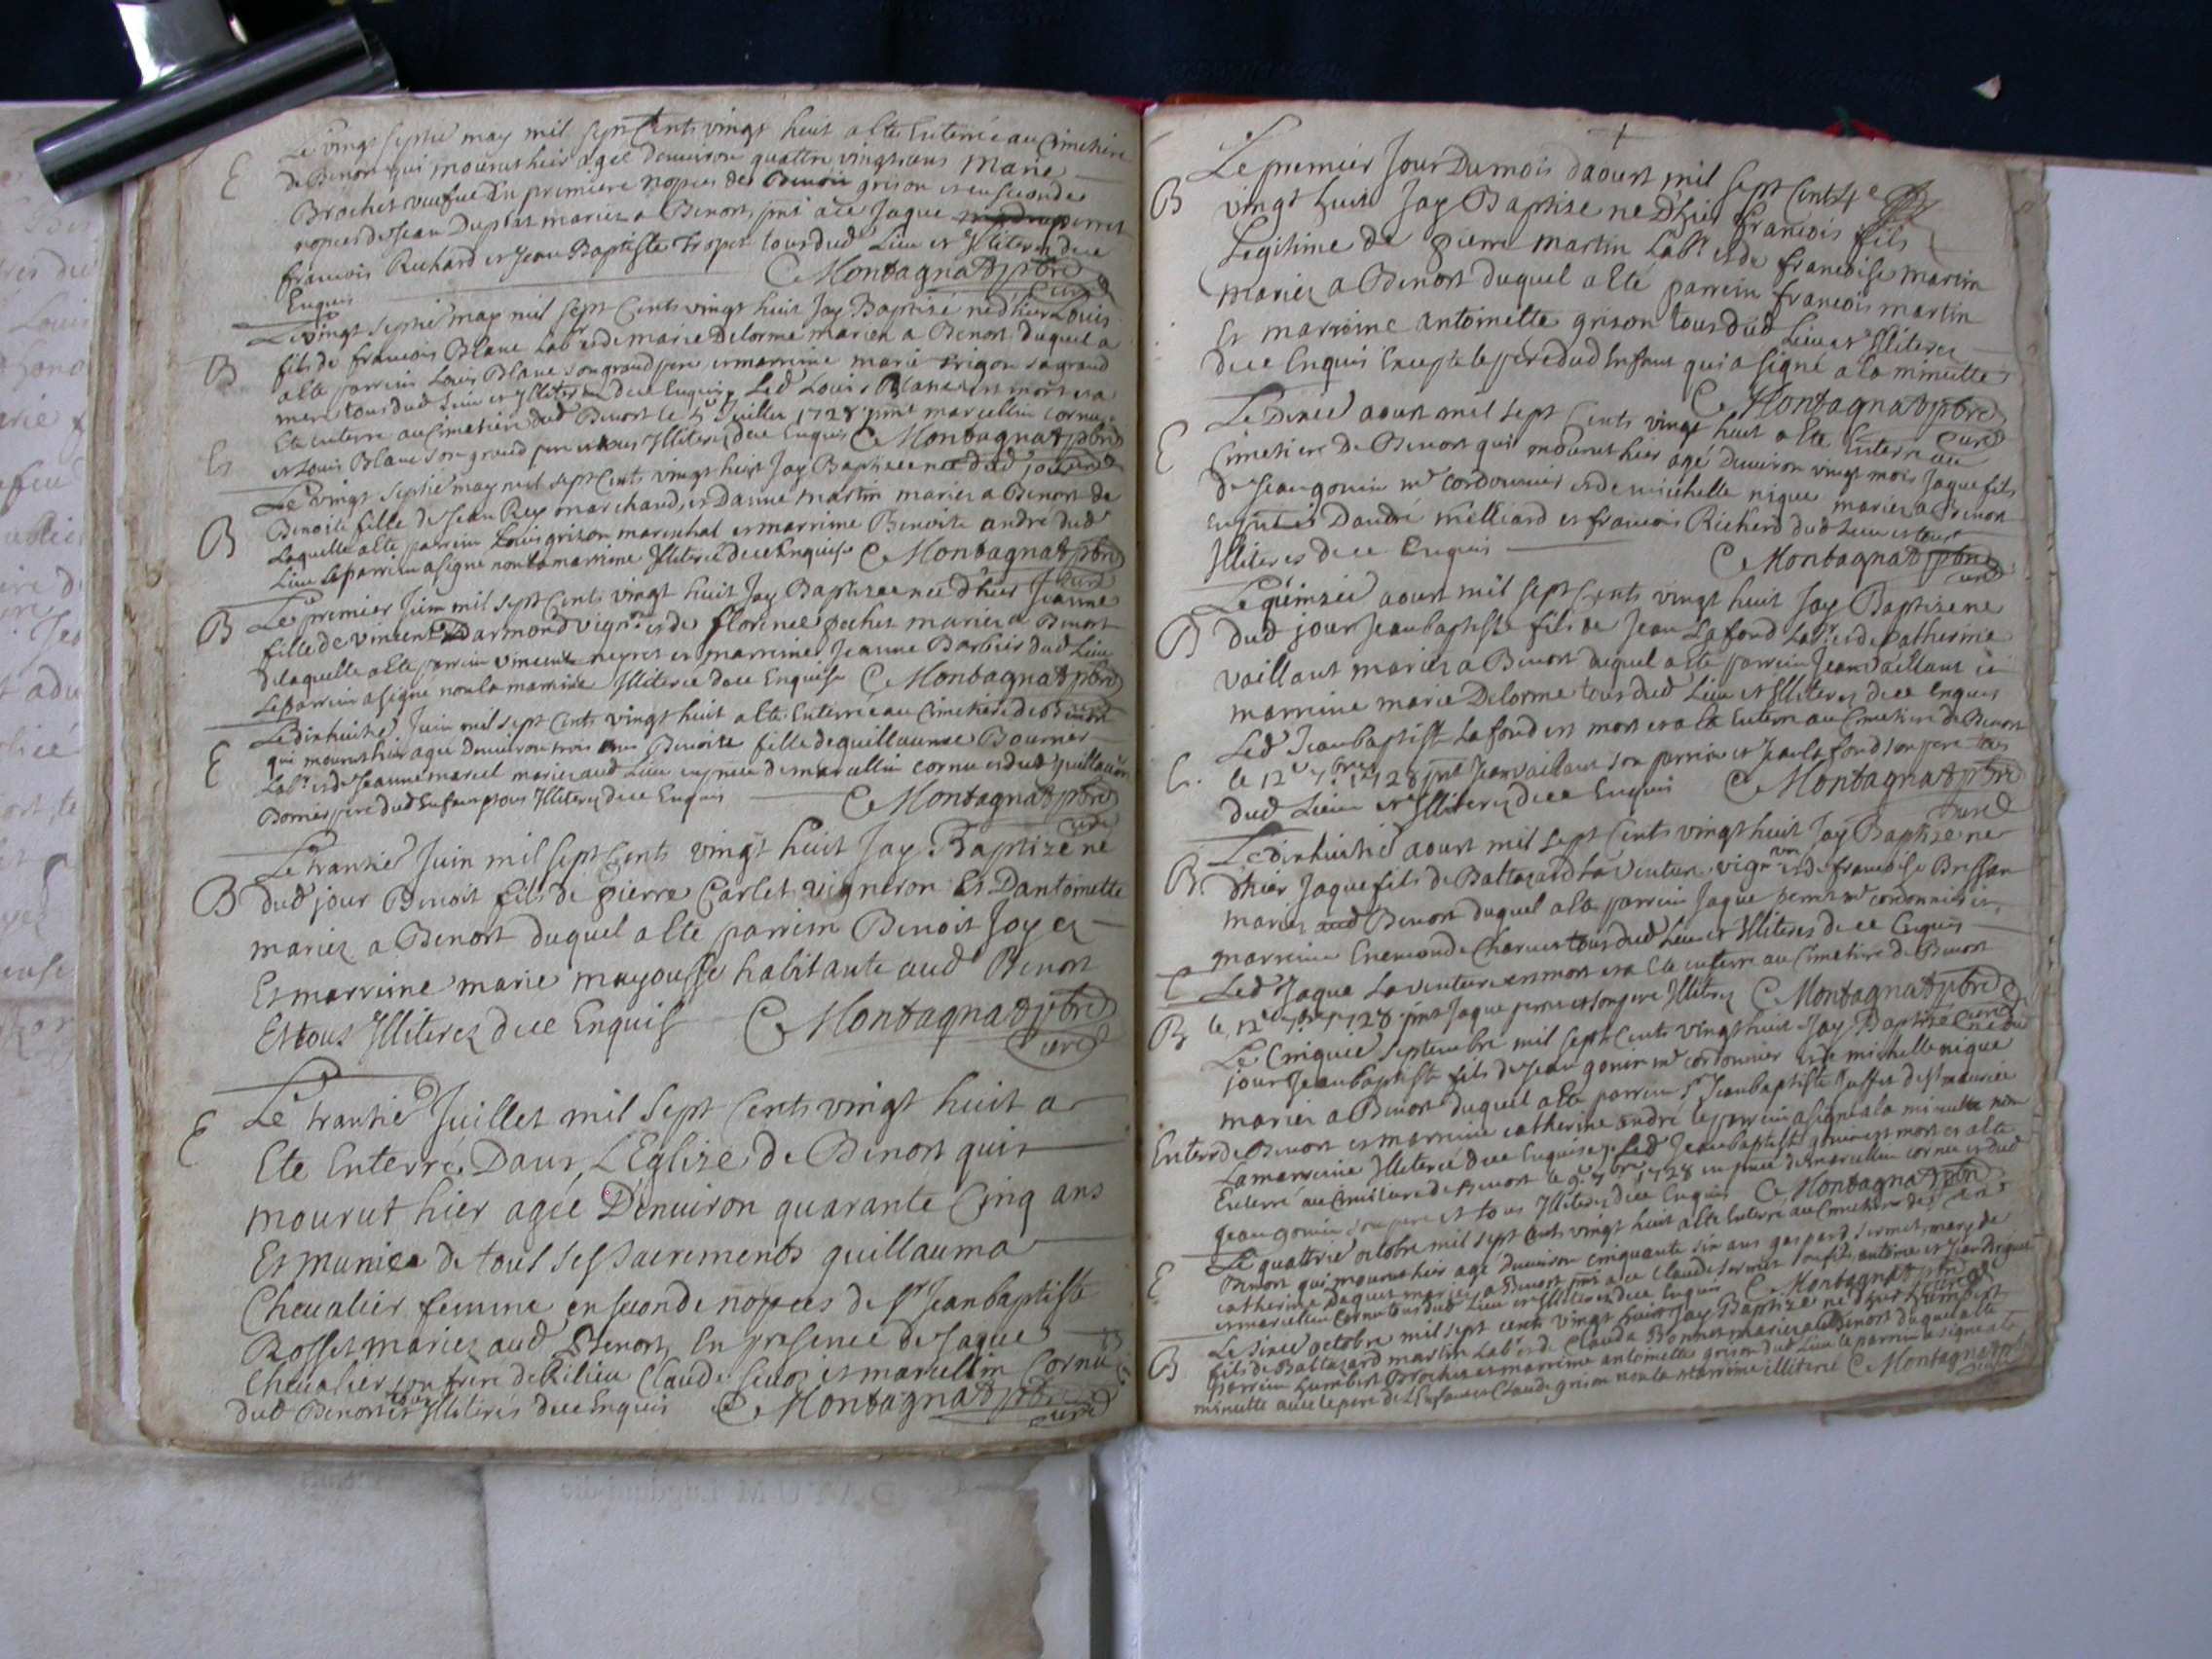 E Le vingt septie may mil sept Cents vingt huit a Eté Enterrée au Cimetiere
de Benost qui mourut hier agée denviron quattre vingts ans Marie
Brochet veufue En premiere nopces de Benoit grison et en seconde
nopces de Jean Duplat mariez a Benost, pnts a ce Jaque perret
francois Richard et Jean Baptiste Tropet tous dud Lieu et Illiterez de ce
Enquis C Montagnat ptre
curé
Le vingt septie may mil sept Cents vingt huit Jay Baptizé ne d'hier Louis
B fils de francois Blanc Labr et de marie Delorme mariez a Benost duquel a
eté parrein Louis Blanc son grand pere et marreine marie trigon sa grand
mere tous dud Lieu et Illiterez de ce Enquis, Led Louis Blanc est mort et a
Eté Enterre au Cimetiere dud Benost le Juillet 1728 pnts marcellin cornu
Er et Louis Blanc son grand pere et tous Illiterez de ce Enquis C Montagnat ptre
curé
Le vingt septie may mil sept Cents vingt huit Jay Baptizee nee dud jour
B Benoite fille de Jean Rey marchand, et Danne martin mariez a Benost de
Laquelle a ete parrein Louis grison marechal et marreine Benoite andré dud
Lieu Le parrein a signe non la marreine Illiteree de ce Enquise C Montagnat ptre
curé
B Le premier Juin mil sept Cents vingt huit Jay Baptizee nee d'hier Jeanne
fille de vincent Darmond vignon et de florence pochet mariez a Benost
de laquelle a ete parrein vincent negret et marreine Jeanne Barbier dud Lieu
Le parrein a signe non la marreine Illiteree de ce Enquise C Montagnat ptre
Le dixhuitie Juin mil sept Cents vingt huit a eté Enterrée au Cimetiere de Benost
E qui mourut hier agée denviron trois ans Benoite fille de guillaume Bournier
Labr et de Jeanne marcel mariez aud Lieu en pnce de marcellin cornu et dud guillaume
Bornier pere dud Enfant tous Illiterez de ce Enquis C Montagnat ptre
curé
Le trantie Juin mil sept Cents vingt huit Jay Baptizé ne
B dud jour Benoit fils de pierre Carlet vigneron Et Dantoinette
mariez a Benost duquel a Eté parrein Benoit Joyez
Et marreine marie mayousse habitante aud Benost
Et tous Illiterez de ce Enquis C Montagnat ptre
curé
E Le trantie Juillet mil Sept Cents vingt huit a
Eté Enterré Dans L'Eglize de Benost qui
mourut hier agée Denviron quarante Cinq ans
Et munie de tous ses sacrements guillauma
Chevalier femme en seconde nopces de Sr Jean baptiste
Rosset mariez aud Benost, En presence de Jaque
Chevalier son frere de Rilieu Claude et marcellin Cornu
dud Benost et tous Illiterés de ce Enquis C Montagnat ptre
curé
Le premier Jour Du mois daoust mil Sept Cent
B vingt huit Jay Baptize ne D'hier francois fils
Legitime de pierre martin Labr et de francoise martin
mariez a Benost duquel a Eté parrein francois martin
Et marreine antoinette grison tous dud Lieu et Illiterez
de ce Enquis Excepte le pere dud Enfant qui a signé a la minutte
C Montagnat ptre
curé
Le aoust mil sept Cents vingt huit a Eté Enterre au
E Cimetiere de Benost qui mourut hier agé denviron vingt mois Jaque fils
de Jean gonin me cordonnier et de michelle nique mariez a Benost
En pnce Dandré Milliard et francois Richard dud Lieu et tous
Illiterez de ce Enquis C Montagnat ptre
curé
Le quinzie aoust mil sept Cents vingt huit Jay Baptize ne
B dud jour Jean baptiste fils de Jean Lafond Labr et de Catherine
vaillant mariez a Benost duquel a eté parrein Jean vaillant et
marreine marie Delorme tous dud Lieu et Illiterez de ce Enquis
Led Jean baptist Lafond est mort et a ete Enterre au Cimetiere de Benost
E. le 12e 7bre 1728 pnts Jean vaillant son parrein et Jean Lafond son pere tous
dud Lieu et Illiterez de ce Enquis C Montagnat ptre
curé
Le dixhuitie aoust mil sept Cents vingt huit Jay Baptize ne
B. dhier Jaque fils de Baltazard Laventure vignon et de francoise Bressan
mariez aud Benost duquel a ete parrein Jaque perret me cordonnier et
marreine Enemonde Charvet tous dud Lieu et Illiteres de ce Enquis
E Led Jaque Laventure est mort et a Ete enterre au Cimetiere de Benost
le 12e 7bre 1728 pnts Jaque perret et son pere Illiterez C Montagnat ptre
curé
B Le Cinquie Septembre mil sept Cents vingt huit Jay Baptize ne dud
jour Jean baptiste fils de Jean gonin me cordonnier et de michelle nique
mariez a Benost duquel a ete parrein Sr Jean baptiste Juffet de St maurice
Enterr de Benost et marreine catherine andré le parrein a signé a la minutte non
La marreine Illiteree de ce Enquise. Led Jean baptiste gonin est mort et a ete
Enterré au Cimetiere de Benost le 9e 7bre 1728 en pnce de marcellin cornu et dud
Jean gonin son pere et tous Illiterez de ce Enquis C Montagnat ptre
Le quatrie octobre mil sept Cents vingt huit a ete Enterre au Cimetiere de
E Benost qui mourut hier agé denviron cinquante six ans gaspard Sermet mary de
catherine Daguet mariez a Benost pnts a ce Claude Sermet son fils, antoine et Jean
et marcellin Cornu tous dud Lieu et Illiterez de ce Enquis C Montagnat ptre
curé
Le octobre mil sept cents vingt huit Jay Baptize né d'hier humbert
B fils de Baltazard martin Labr et de Claudа Bonnet mariez aud Benost duquel a ete
parrein humbert Brochet et marreine antoinette grison dud Lieu le parrein a signe a la
minutte avec le pere de L'Enfant et Claude grison non la marreine illiteree C Montagnat ptre
curé